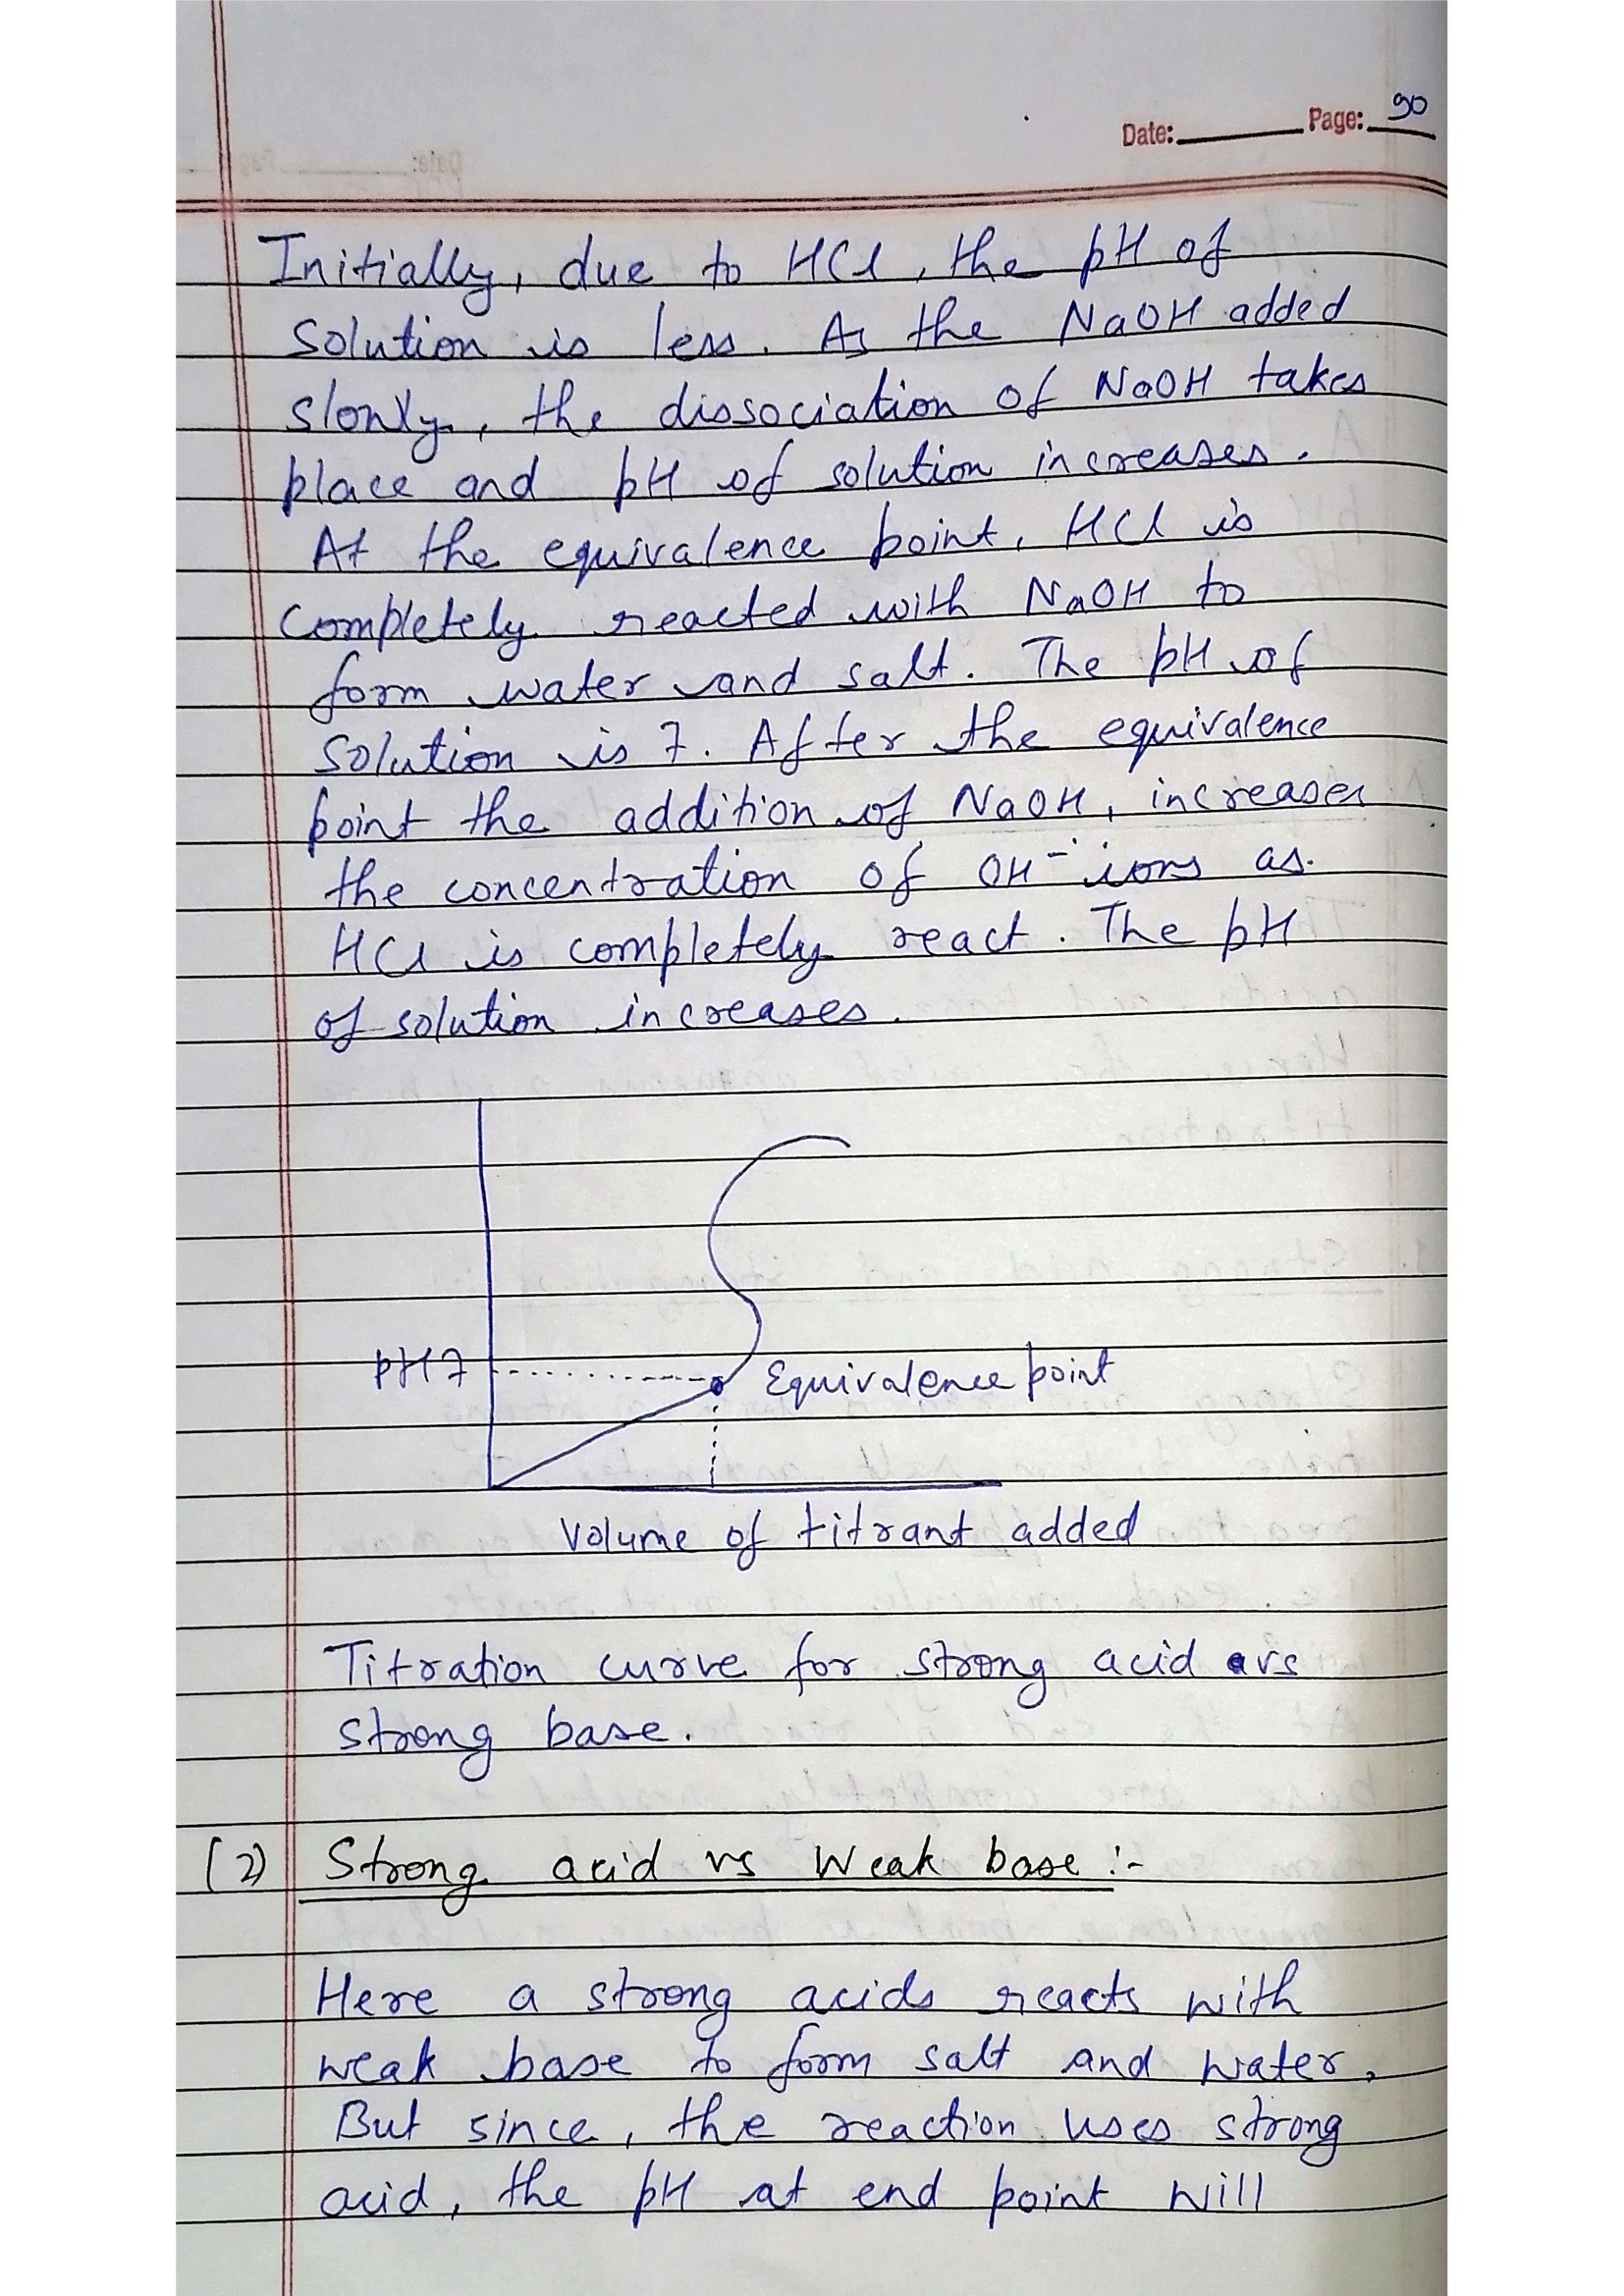 Date: Page: 90
Initially, due to HCl, the pH of
solution is less. As the NaOH added
slowly, the dissociation of NaOH takes
place and pH of solution increases.
At the equivalence point, HCl is
completely reacted with NaOH to
form water and salt. The pH of
solution is 7. After the equivalence
point the addition of NaOH, increases
the concentration of OH⁻ ions as
HCl is completely react. The pH
of solution increases.
pH 7
Equivalence point
Volume of titrant added
Titration curve for strong acid vs
strong base.
(2) Strong acid vs Weak base :-
Here a strong acids reacts with
weak base to form salt and water,
But since, the reaction uses strong
acid, the pH at end point will